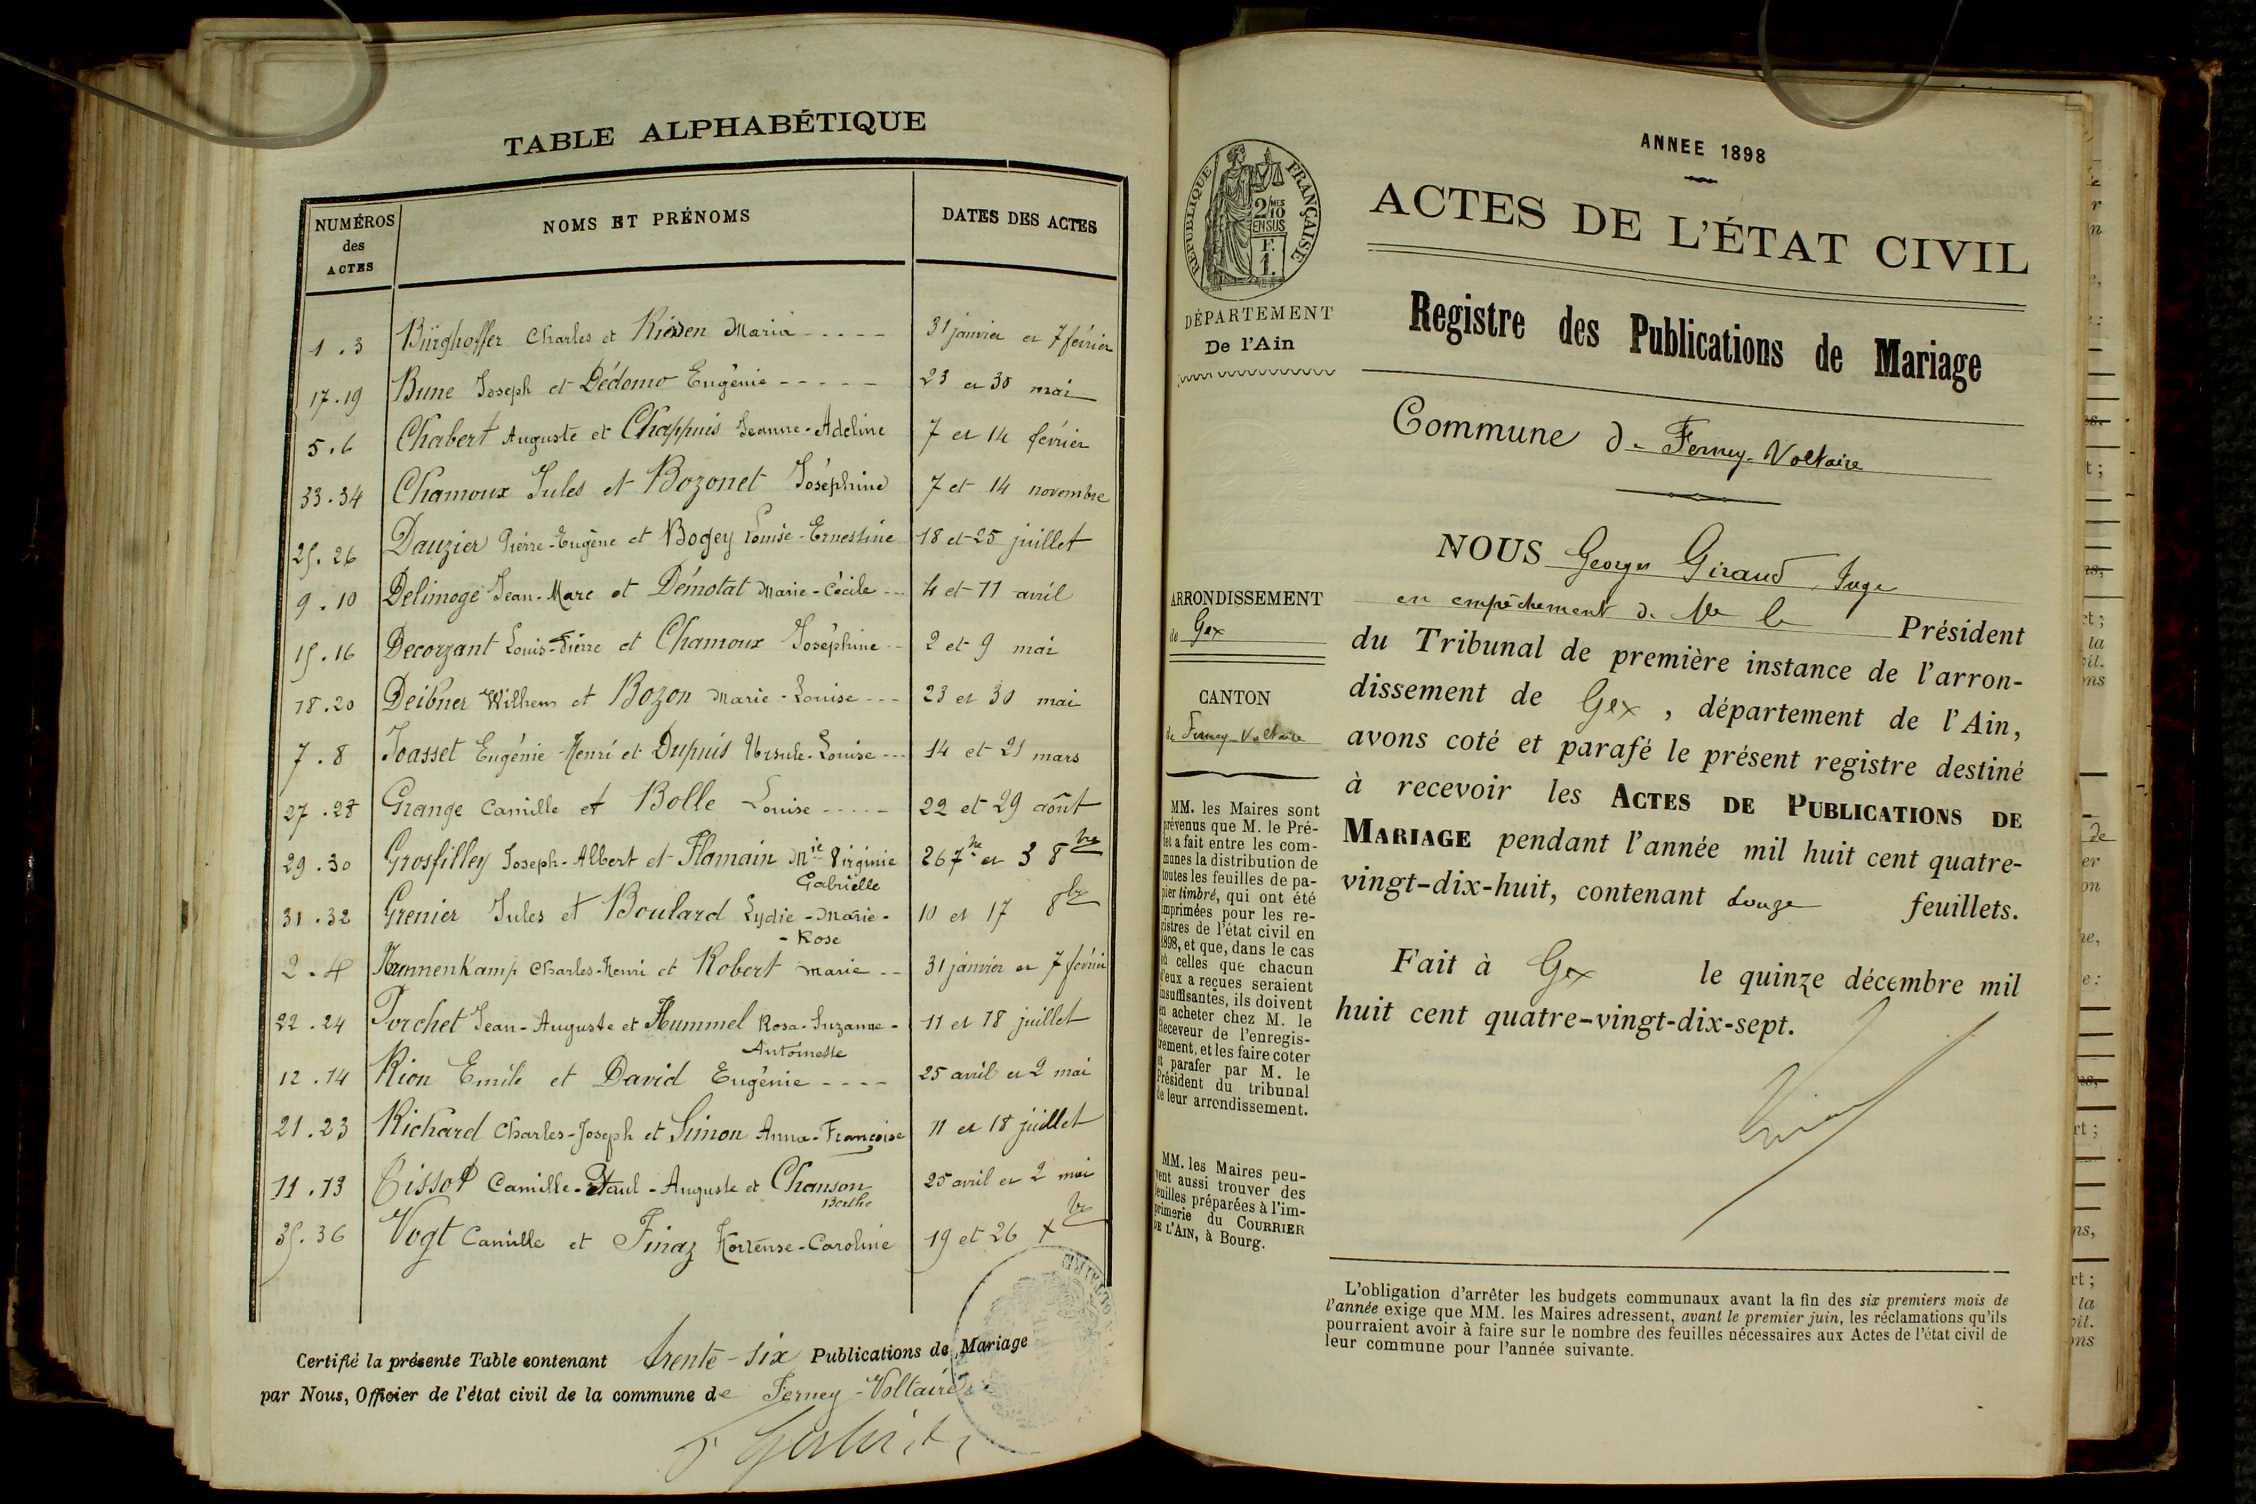 TABLE ALPHABÉTIQUE
NUMÉROS des ACTES
NOMS ET PRÉNOMS
DATES DES ACTES
1 . 3 Bürghoffer Charles et Maria 31 janvier et 7 février
17 . 19 Bune Joseph et Dédomo Eugénie 23 et 30 mai
5 . 6 Chabert Auguste et Chappuis Jeanne-Adeline 7 et 14 février
33 . 34 Chamoux Jules et Bozonet Joséphine 7 et 14 novembre
25 . 26 Dauzier Pierre-Eugène et Bogey Louise-Ernestine 18 et 25 juillet
9 . 10 Delimoge Jean-Marc et Démotat Marie-Cécile 4 et 11 avril
15 . 16 Decorzant Louis-Pierre et Chamoux Joséphine 2 et 9 mai
18 . 20 Deibner Wilhem et Bozon Marie-Louise 23 et 30 mai
7 . 8 Joasset Eugénie-Henri et Dupuis Ursule-Louise 14 et 21 mars
27 . 28 Grange Camille et Bolle Louise 22 et 29 août
29 . 30 Grosfilley Joseph-Albert et Flamain Mie Virginie 26 7bre et 3 8bre
Gabrielle
31 . 32 Grenier Jules et Boulard Lydie-Marie- 10 et 17 8bre
- Rose
2 . 4 Charles-Henri et Robert Marie 31 janvier et 7 février
22 . 24 Porchet Jean-Auguste et Hummel Rosa-Suzanne- 11 et 18 juillet
Antoinette
12 . 14 Rion Emile et David Eugénie 25 avril et 2 mai
21 . 23 Richard Charles-Joseph et Simon Anna-Françoise 11 et 18 juillet
11 . 13 Tissot Camille-Paul-Auguste et Chanson 25 avril et 2 mai
Berthe
35 . 36 Vogt Camille et Finaz Hortense-Caroline 19 et 26 Xbre
Certifié la présente Table contenant trente-six Publications de Mariage
par Nous, Officier de l'état civil de la commune de Ferney-Voltaire
ANNEE 1898
RÉPUBLIQUE FRANÇAISE
2/10 MES
EN SUS
F.
1.
ACTES DE L'ÉTAT CIVIL
DÉPARTEMENT
De l'Ain
Registre des Publications de Mariage
Commune de Ferney-Voltaire
ARRONDISSEMENT
de Gex
CANTON
de Ferney-Voltaire
NOUS Georges Giraud, Juge
en empêchement de Mr le Président
du Tribunal de première instance de l'arron-
dissement de Gex, département de l'Ain,
avons coté et parafé le présent registre destiné
à recevoir les ACTES DE PUBLICATIONS DE
MARIAGE pendant l'année mil huit cent quatre-
vingt-dix-huit, contenant douze feuillets.
Fait à Gex le quinze décembre mil
huit cent quatre-vingt-dix-sept.
MM. les Maires sont
prévenus que M. le Pré-
fet a fait entre les com-
munes la distribution de
toutes les feuilles de pa-
pier timbré, qui ont été
imprimées pour les re-
gistres de l'état civil en
1898, et que, dans le cas
où celles que chacun
d'eux a reçues seraient
insuffisantes, ils doivent
en acheter chez M. le
Receveur de l'enregis-
trement, et les faire coter
et parafer par M. le
Président du tribunal
de leur arrondissement.
MM. les Maires peu-
vent aussi trouver des
feuilles préparées à l'im-
primerie du COURRIER
DE L'AIN, à Bourg.
L'obligation d'arrêter les budgets communaux avant la fin des six premiers mois de
l'année exige que MM. les Maires adressent, avant le premier juin, les réclamations qu'ils
pourraient avoir à faire sur le nombre des feuilles nécessaires aux Actes de l'état civil de
leur commune pour l'année suivante.